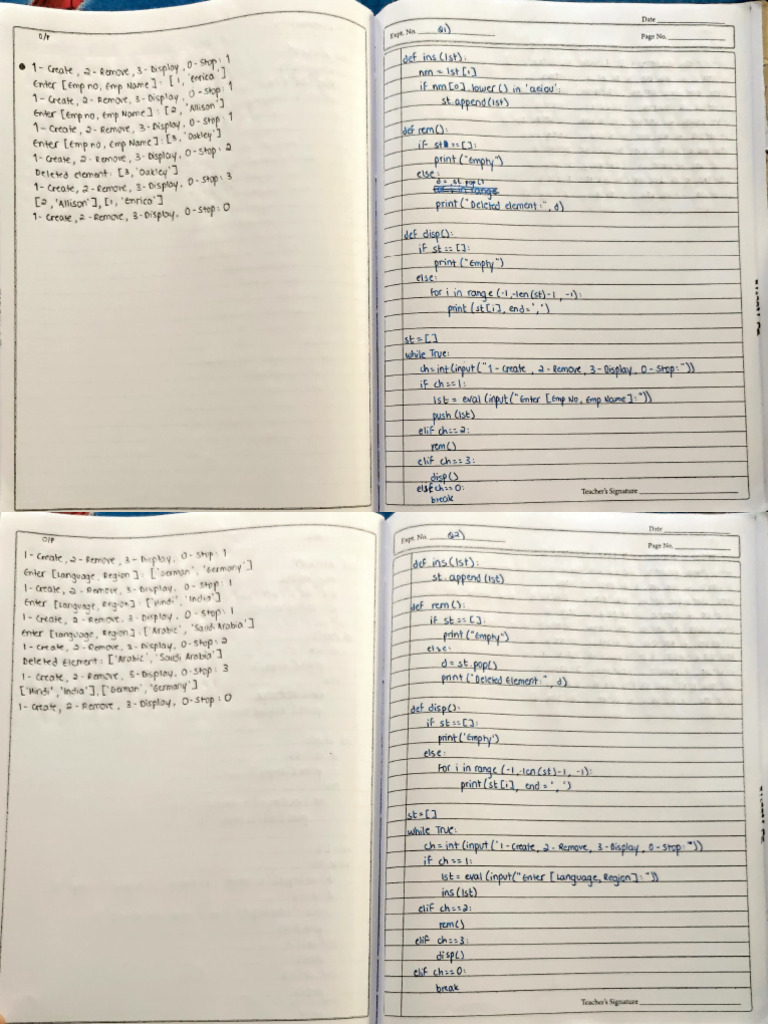 O/P
1- Create, 2- Remove, 3- Display, 0- Stop: 1
Enter [Emp no, Emp Name] : [1, 'Enrica']
1- Create, 2- Remove, 3- Display, 0- Stop: 1
Enter [Emp no, Emp Name] : [2, 'Allison']
1- Create, 2- Remove, 3- Display, 0- Stop: 1
Enter [Emp no, Emp Name] : [3, 'Oakley']
1- Create, 2- Remove, 3- Display, 0- Stop: 2
Deleted element: [3, 'Oakley']
1- Create, 2- Remove, 3- Display, 0- Stop: 3
[2, 'Allison'], [1, 'Enrica']
1- Create, 2- Remove, 3- Display, 0- Stop: 0
Date
Expt. No. Q1)
Page No.
def ins(lst):
nm = lst[1]
if nm[0].lower() in 'aeiou':
st.append(lst)
def rem():
if st==[]:
print("Empty")
else:
d = st.pop()
print("Deleted element:", d)
def disp():
if st==[]:
print("Empty")
else:
for i in range (-1,-len(st)-1, -1):
print (st[i], end=',')
st=[]
while True:
ch=int(input("1- Create, 2- Remove, 3- Display, 0- Stop:"))
if ch==1:
lst = eval(input("Enter [Emp No, Emp Name]:"))
push(lst)
elif ch==2:
rem()
elif ch==3:
disp()
elif ch==0:
break
Teacher's Signature
O/P
1- Create, 2- Remove, 3- Display, 0- Stop: 1
Enter [Language, Region] : ['German', 'Germany']
1- Create, 2- Remove, 3- Display, 0- Stop: 1
Enter [Language, Region] : ['Hindi', 'India']
1- Create, 2- Remove, 3- Display, 0- Stop: 1
Enter [Language, Region] : ['Arabic', 'Saudi Arabia']
1- Create, 2- Remove, 3- Display, 0- Stop: 2
Deleted Element: ['Arabic', 'Saudi Arabia']
1- Create, 2- Remove, 3- Display, 0- Stop: 3
['Hindi', 'India'], ['German', 'Germany']
1- Create, 2- Remove, 3- Display, 0- Stop: 0
Date
Expt. No. Q2)
Page No.
def ins(lst):
st.append(lst)
def rem():
if st==[]:
print("Empty")
else:
d = st.pop()
print("Deleted Element:", d)
def disp():
if st==[]:
print('Empty')
else:
for i in range (-1,-len(st)-1, -1):
print(st[i], end = ', ')
st=[]
while True:
ch= int(input('1- Create, 2- Remove, 3- Display, 0- Stop: "))
if ch==1:
lst= eval(input("Enter [Language, Region]: "))
ins(lst)
elif ch==2:
rem()
elif ch==3:
disp()
elif ch==0:
break
Teacher's Signature